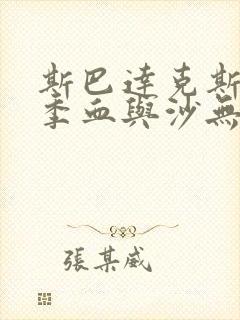 斯巴達克斯
季血與沙無
張某威